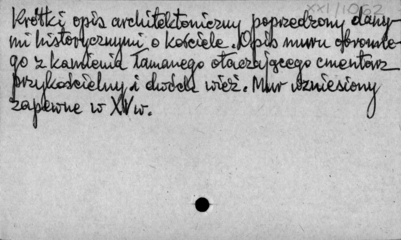 XXI/10/62
Krótki opis architektoniczny poprzedzony dany-
mi historycznymi o kościele. Opis muru obronne-
go z kamienia łamanego otaczającego cmentarz
przykościelny i dwóch wież. Mur wzniesiony
zapewne w XV w.